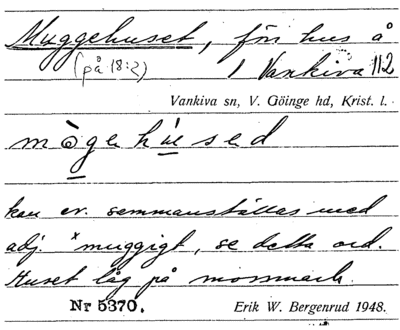 Muggehuset, förr hus å
(på 18:2) 1 Vankiva 112
Vankiva sn, V. Göinge hd, Krist. l.
kan ev. sammanställas med
adj. *muggigt, se detta ord.
Huset låg på mossmark.
Nr 5370. Erik W. Bergenrud 1948.